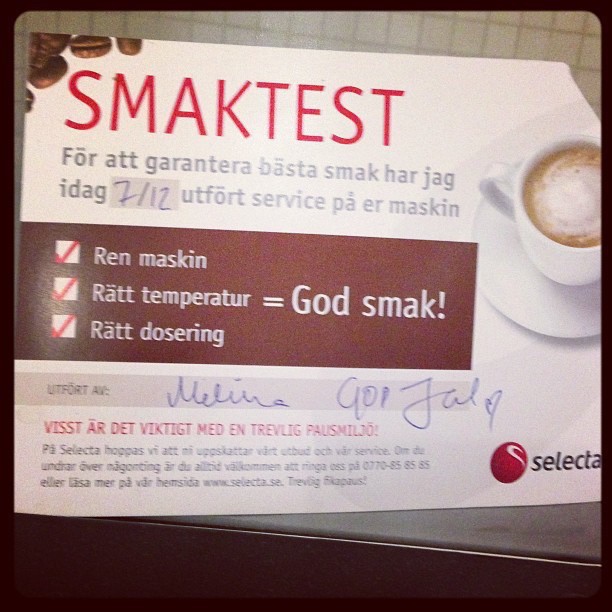 SMAKTEST
För att garantera bästa smak har jag
idag 7/12 utfört service på er maskin
Ren maskin
Rätt temperatur = God smak!
Rätt dosering
UTFÖRT AV: Melina God Jul
VISST ÄR DET VIKTIGT MED EN TREVLIG PAUSMILJÖ!
På Selecta hoppas vi att ni uppskattar vårt utbud och vår service. Om du
undrar över någonting är du alltid välkommen att ringa oss på 0770-85 85 85
eller läsa mer på vår hemsida www.selecta.se. Trevlig fikapaus!
selecta